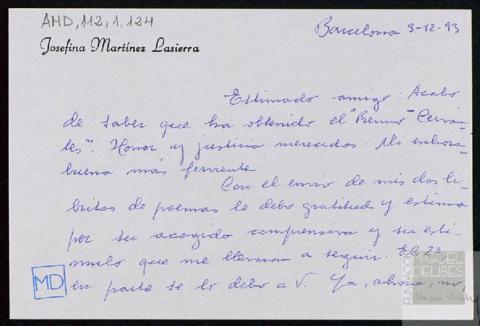 AMD, 112, 1, 124
Josefina Martínez Lasierra
Barcelona 9-12-93
Estimado amigo: Acabo
de saber que ha obtenido el "Premio Cerván-
tes". Honor y justicia merecidos. Mi enhora-
buena más ferviente.
Con el envio de mis dos li-
britos de poemas le debo gratitud y estima
por su acogida comprensiva y su estí-
mulo que me llevaron a seguir.
en parte se lo debo a V. Ya, ahora, no
MD
FUNDACIÓN
MIGUEL
DELIBES